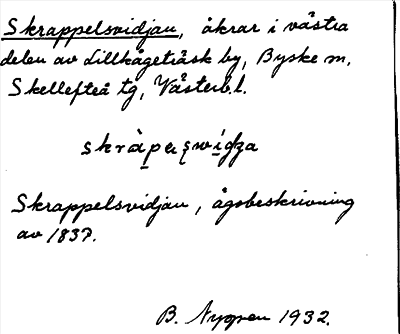 Skrappelsvidjan, åkrar i västra
delen av Lillkågeträsk by, Byske m,
Skellefteå tg, Västerb.l.
Skrappelsvidjan, ägobeskrivning
av 1837.
B. Nygren 1932.